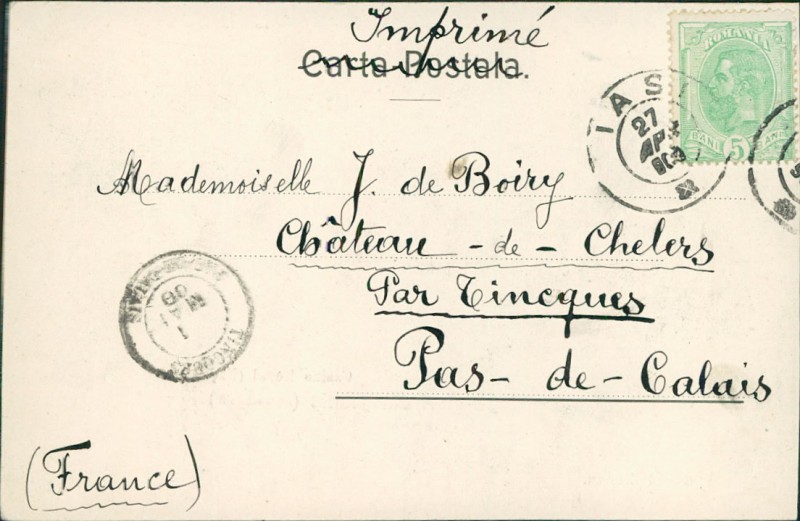 Imprimé
Carta Postala.
ROMANIA
BANI 5 BANI
IASI
27 APR
Mademoiselle J. de Boiry
Château - de - Chelers
Par Tincques
Pas - de - Calais
TINCQUES
1 MAI
(France)